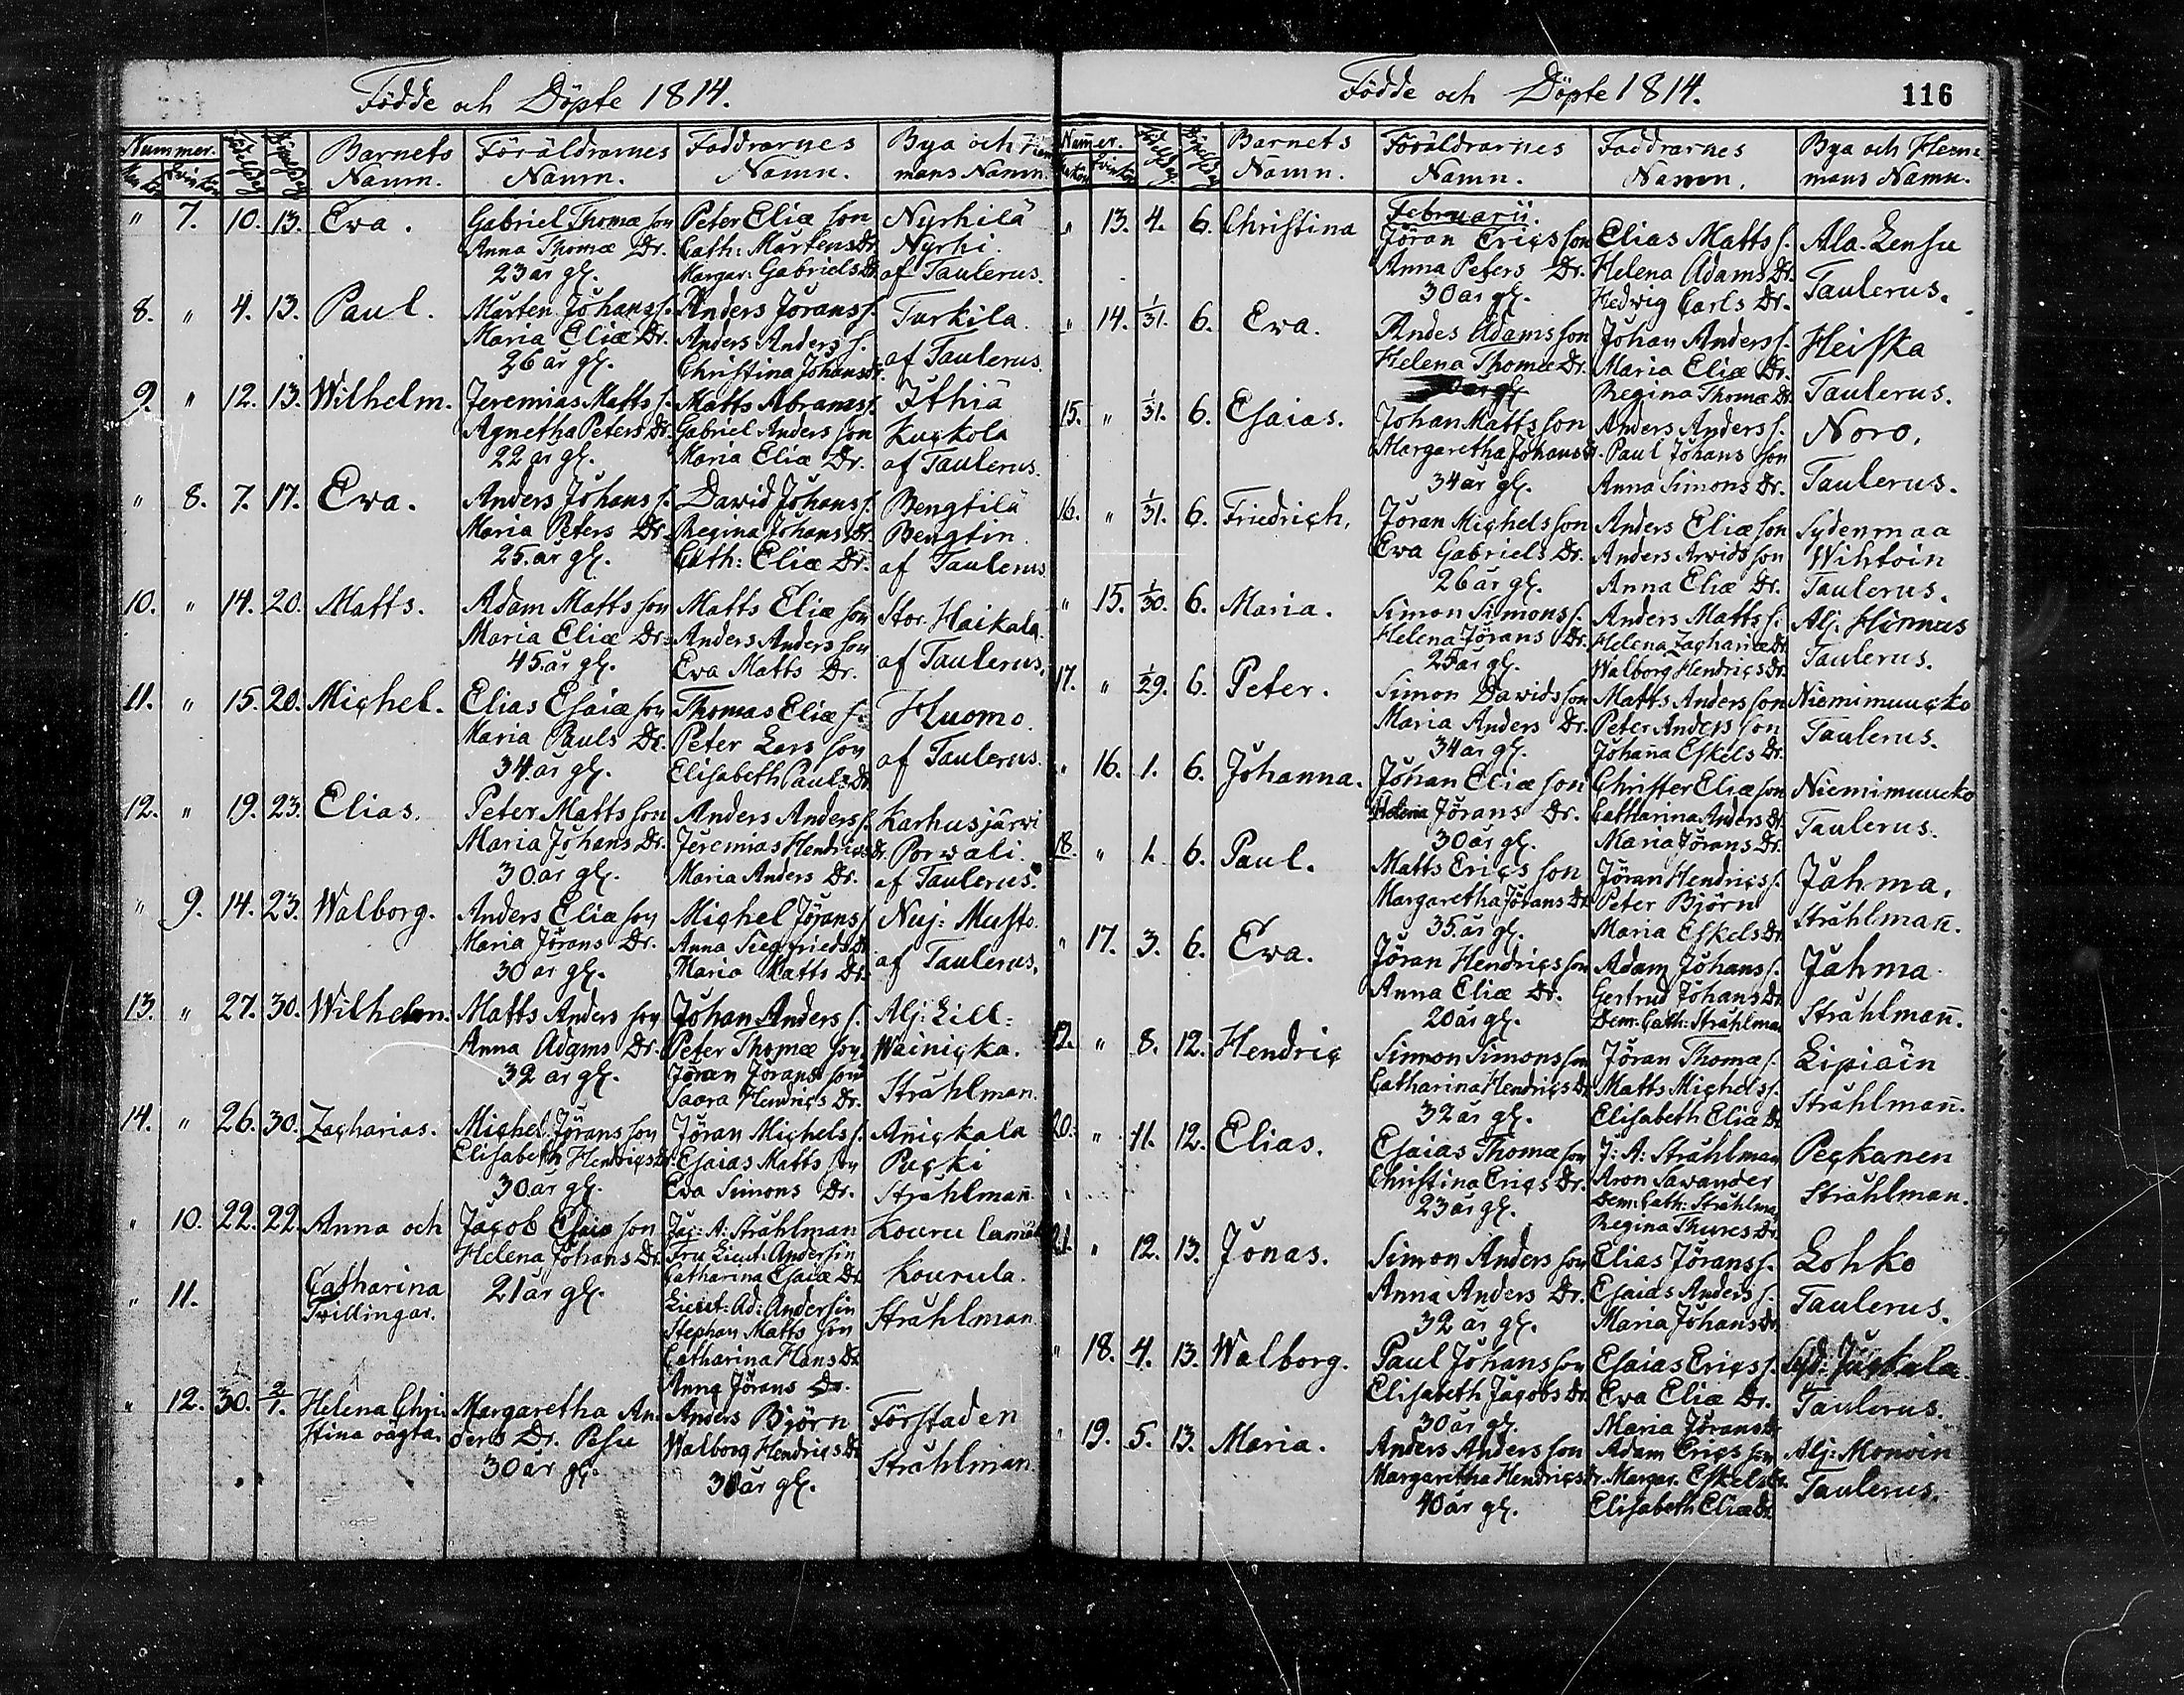 Födde och Döpte 1814.
Nummer. Barnets Föräldrarnes Faddrarnes Bya och Hem
Namn. Namn. Namn. mans Namn.
" 7. 10. 13. Eva. Gabriel Thomæ son Peter Eliæ son Nyrhilä
Anna Thomæ Dr. Cath: Mårtens Dr. Nyrhi.
23 år gl. Margar: Gabriels Dr. af Taulerus.
8. " 4. 13. Paul. Mårten Johans s. Anders Jörans s. Turkila.
Maria Eliæ Dr. Anders Anders s.
26 år gl. Christina Johans Dr. af Taulerus.
9. " 12. 13. Wilhelm. Jeremias Matts s. Matts Abrams s. Ithiä
Agnetha Peters Dr. Gabriel Anders son Kuckola
22 år gl. Maria Eliæ Dr. af Taulerus.
" 8. 7. 17. Eva. Anders Johans s. David Johans s. Bengtilä
Maria Peters Dr. Regina Johans Dr. Bengtin.
25. år gl. Cath: Eliæ Dr. af Taulerus.
10. " 14. 20. Matts. Adam Matts son Matts Eliæ son Stor. Haikala.
Maria Eliæ Dr. Anders Anders son
45. år gl. Eva Matts Dr. af Taulerus.
11. " 15. 20. Michel. Elias Esaiæ son Thomas Eliæ s. Huomo.
Maria Pauls Dr. Peter Lars son
34. år gl. Elisabeth Pauls Dr. af Taulerus.
12. " 19. 23. Elias. Peter Matts son Anders Anders s. Karhusjärvi
Maria Johans Dr. Jeremias Hendrics Porvali.
30. år gl. Maria Anders Dr. af Taulerus.
" 9. 14. 23. Walborg. Anders Eliæ son Michel Jörans s. Nuj: Musto.
Maria Jörans Dr. Anna Siegfrieds Dr.
30 år gl. Maria Matts Dr. af Taulerus.
13. " 27. 30. Wilhelm. Matts Anders son Johan Anders s. Alj: Lill:
Anna Adams Dr. Peter Thomæ son. Wainicka.
32 år gl. Jöran Jörans son
Saara Hendrics Dr. Stråhlman.
14. " 26. 30. Zacharias. Michel Jörans son Jöran Michels s. Anickala
Elisabeth Hendrics Dr. Esaias Matts son Pucki
30. år gl. Eva Simons Dr. Stråhlman̄.
" 10. 22. 22. Anna och Jacob Esaiæ son Jac: A: Stråhlman Kouru
Helena Johans Dr. Fru Lieut: Andersin
" 11. Catharina 21 år gl. Catharina Esaiæ Dr. Kourula.
Tvillingar. Lieut: Ad: Andersin Stråhlman
Stephan Matts son
Catharina Hans Dr.
Anna Jörans Dr.
" 12. 30. 2/1. Helena Chri Margaretha An Anders Björn Förstaden
stina oägta. ders Dr. Pesu Walborg Hendrics Dr.
30 år gl. 30 år gl. Stråhlman.
Födde och Döpte 1814. 116
Num̄er. Barnets Föräldrarnes Faddrarnes Bya och Hem
Namn. Namn. Namn. mans Namn.
Februarii.
" 13. 4. 6. Christina Jöran Erics son Elias Matts s. Ala. Lensu
Anna Peters Dr. Helena Adams Dr.
30 år gl. Hedvig Carls Dr. Taulerus.
" 14. 1/31. 6. Eva. Andes Adams son Johan Anders s. Heiska
Helena Thomæ Dr. Maria Eliæ Dr.
år gl Regina Thomæ Dr. Taulerus.
15. " 1/31. 6. Esaias. Johan Matts son Anders Anders s. Noro.
Margaretha Johans Paul Johans son
34 år gl. Anna Simons Dr. Taulerus.
16. " 1/31. 6. Friedrich. Jöran Michels son Anders Eliæ son Sydenmaa
Eva Gabriels Dr. Anders Arvids son Wihtoin
26 år gl. Anna Eliæ Dr. Taulerus.
" 15. 1/30. 6. Maria. Simon Simons s. Anders Matts s. Alj. Himus
Helena Jörans Dr. Helena Zachariæ Dr.
25 år gl. Walborg Hendrics Dr. Taulerus.
17. " 1/29. 6. Peter. Simon Davids son Matts Anders son Niemimuucko
Maria Anders Dr. Peter Anders son
34 år gl. Johan̄a Eskels Dr. Taulerus.
" 16. 1. 6. Johanna. Johan Eliæ son Christer Eliæ son Niemimuucko
Helena Jörans Dr. Catharina Anders Dr.
30 år gl. Maria Jörans Dr. Taulerus.
18. " 1. 6. Paul. Matts Erics son Jöran Hendrics s. Jähmä.
Margaretha Jörans Dr. Peter Björn
35. år gl. Maria Eskels Dr. Stråhlman̄.
" 17. 3. 6. Eva. Jöran Hendrics son Adam Johans s. Jähmä
Anna Eliæ Dr. Gertrud Johans Dr.
20 år gl. Dem: Cath: Stråhlman Stråhlman̄.
" 8. 12. Hendric Simon Simons son Jöran Thomæ s. Lipiäin
Catharina Hendrics Dr. Matts Michels s.
32 år gl. Elisabeth Eliæ Dr. Stråhlman̄.
20. " 11. 12. Elias. Esaias Thomæ son J: A: Stråhlman Peckanen
Christina Erics Dr. Aron Savander
23 år gl. Dem: Cath: Stråhlman Stråhlman.
Regina Thures Dr.
21. " 12. 13. Jonas. Simon Anders son Elias Jörans s. Lohko
Anna Anders Dr. Esaias Anders s.
32 år gl. Maria Johans Dr. Taulerus.
" 18. 4. 13. Walborg. Paul Johans son Esaias Erics s. Syd: Juckala.
Elisabeth Jacobs Dr. Eva Eliæ Dr.
30 år gl. Maria Jörans Dr. Taulerus.
" 19. 5. 13. Maria. Anders Anders son Adam Erics son Alj: Monoin
Margaretha Hendrics Dr. Margar. Eskels Dr.
40 år gl. Elisabeth Eliæ Dr. Taulerus.